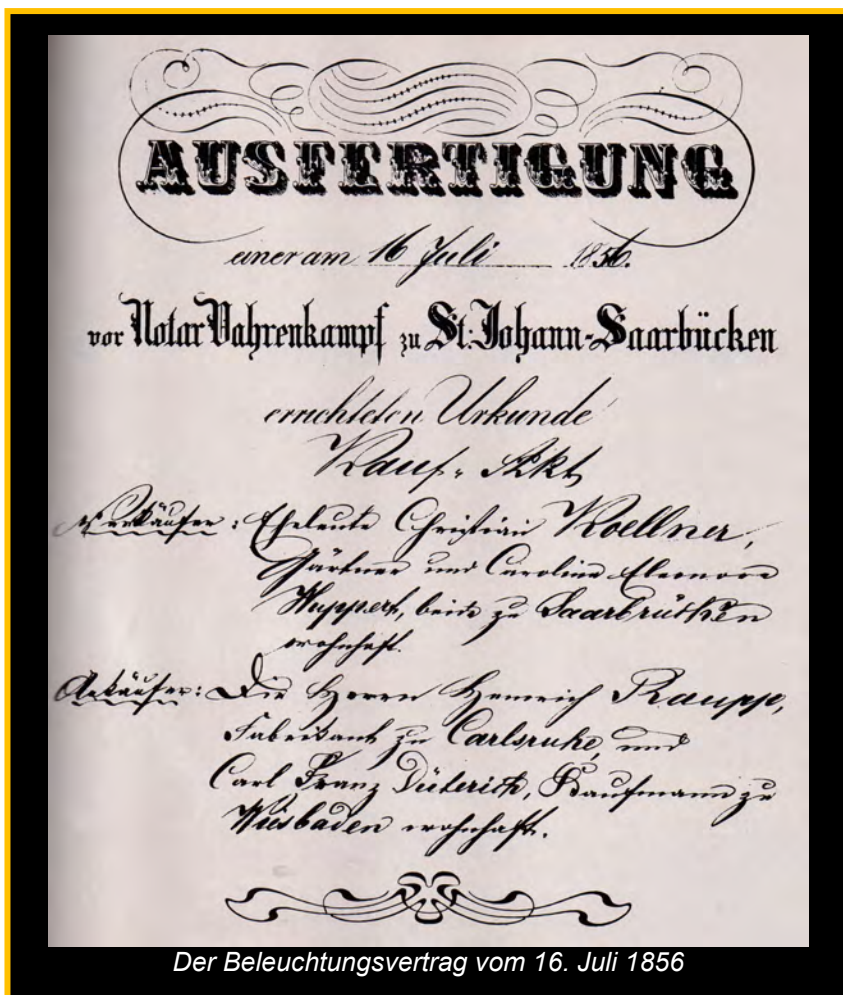 AUSFERTIGUNG
einer am 16 Juli 1856.
vor Notar Vahrenkampf zu St. Johann-Saarbücken
errichteten Urkunde
Kauf-Akt
Verkäufer: Eheleute Christian Koellner,
Gärtner und Caroline Eleonore
Huppert, beide zu Saarbrücken
wohnhaft.
Ankäufer: Die Herren Heinrich Raupp,
Fabrikant zu Carlsruhe, und
Carl Franz Dieterich, Kaufmann zu
Wiesbaden wohnhaft.
Der Beleuchtungsvertrag vom 16. Juli 1856